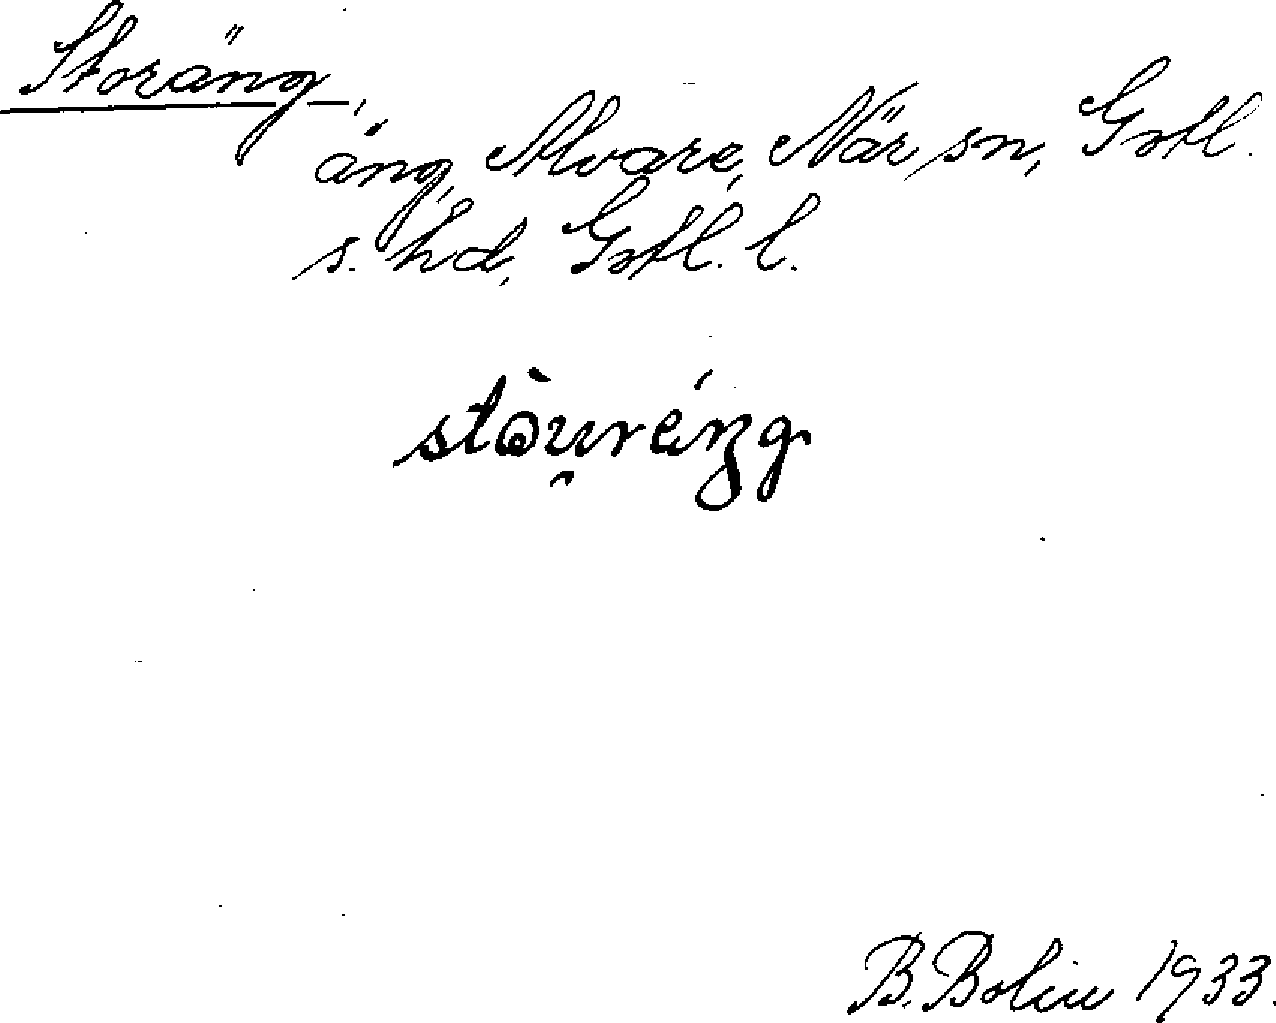 Storäng,
äng, Alvare, När sn, Gotl.
s. hd, Gotl. l.
stòu̯réŋg
B. Bolin 1933.